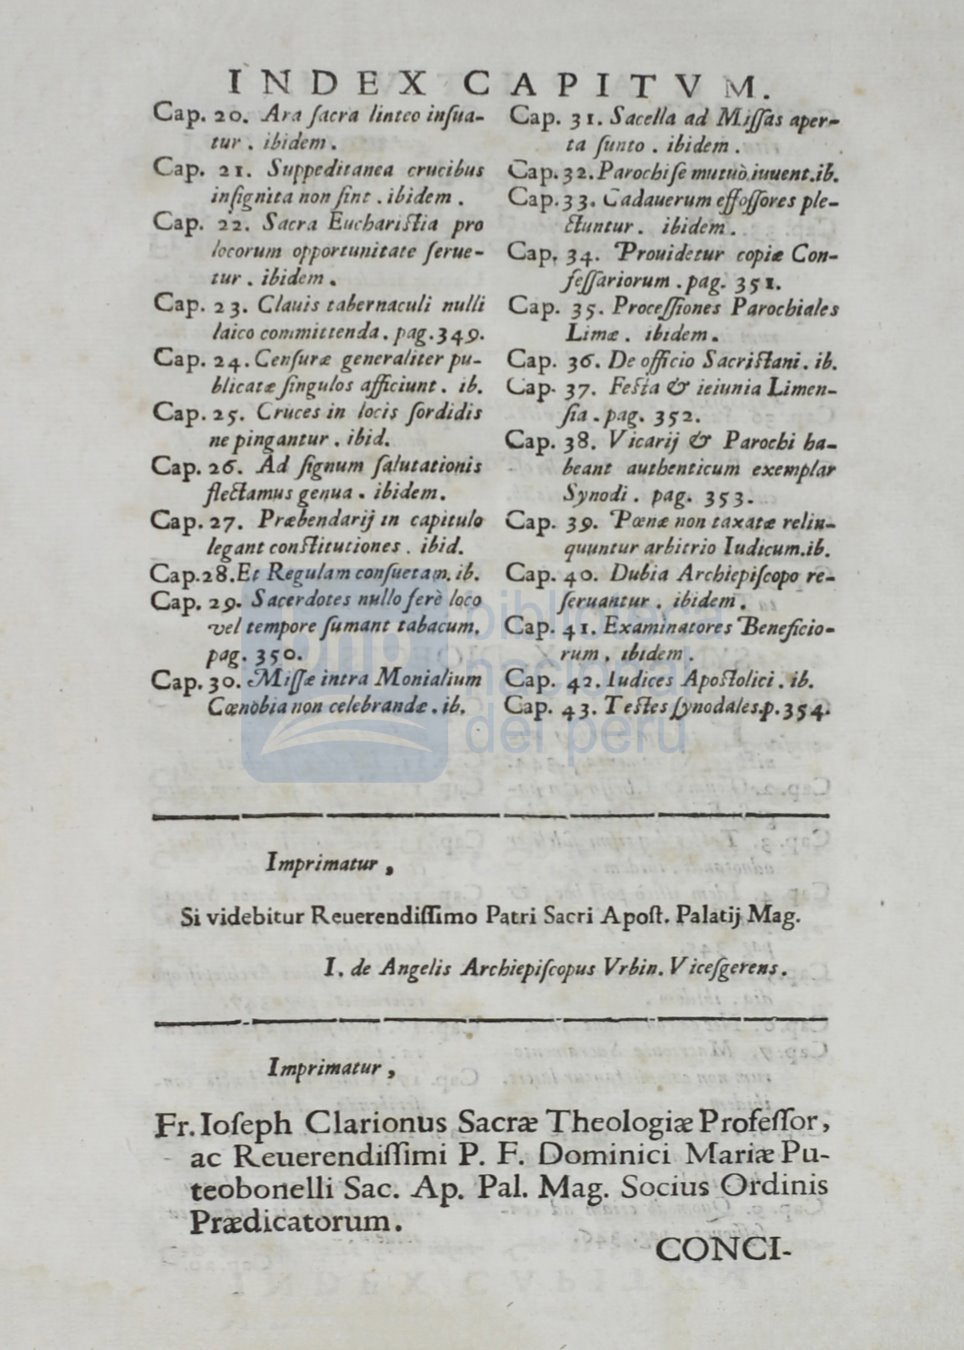 INDEX CAPITVM.
Cap. 20. Ara ſacra linteo inſua-
tur. ibidem.
Cap. 21. Suppeditanea crucibus
inſignita non ſint. ibidem.
Cap. 22. Sacra Euchariſtia pro
locorum opportunitate ſerue-
tur. ibidem.
Cap. 23. Clauis tabernaculi nulli
laico committenda. pag. 349.
Cap. 24. Cenſuræ generaliter pu-
blicatæ ſingulos afficiunt. ib.
Cap. 25. Cruces in locis ſordidis
ne pingantur. ibid.
Cap. 26. Ad ſignum ſalutationis
flectamus genua. ibidem.
Cap. 27. Præbendarij in capitulo
legant conſtitutiones. ibid.
Cap. 28. Et Regulam conſuetam. ib.
Cap. 29. Sacerdotes nullo ferè loco
vel tempore ſumant tabacum.
pag. 350.
Cap. 30. Miſſæ intra Monialium
Cœnobia non celebrandæ. ib.
Cap. 31. Sacella ad Miſſas aper-
ta ſunto. ibidem.
Cap. 32. Parochi ſe mutuò iuuent. ib.
Cap. 33. Cadauerum effoſſores ple-
ctuntur. ibidem.
Cap. 34. Prouidetur copiæ Con-
feſſariorum. pag. 351.
Cap. 35. Proceſſiones Parochiales
Limæ. ibidem.
Cap. 36. De officio Sacriſtani. ib.
Cap. 37. Feſta & ieiunia Limen-
ſia. pag. 352.
Cap. 38. Vicarij & Parochi ha-
beant authenticum exemplar
Synodi. pag. 353.
Cap. 39. Pœnæ non taxatæ relin-
quuntur arbitrio Iudicum. ib.
Cap. 40. Dubia Archiepiſcopo re-
ſeruantur. ibidem.
Cap. 41. Examinatores Beneficio-
rum. ibidem.
Cap. 42. Iudices Apoſtolici. ib.
Cap. 43. Teſtes ſynodales. p. 354.
biblioteca
nacional
del perú
Imprimatur,
Si videbitur Reuerendiſſimo Patri Sacri Apoſt. Palatij Mag.
I. de Angelis Archiepiſcopus Vrbin. Viceſgerens.
Imprimatur,
Fr. Ioſeph Clarionus Sacræ Theologiæ Profeſſor,
ac Reuerendiſſimi P. F. Dominici Mariæ Pu-
teobonelli Sac. Ap. Pal. Mag. Socius Ordinis
Prædicatorum.
CONCI-